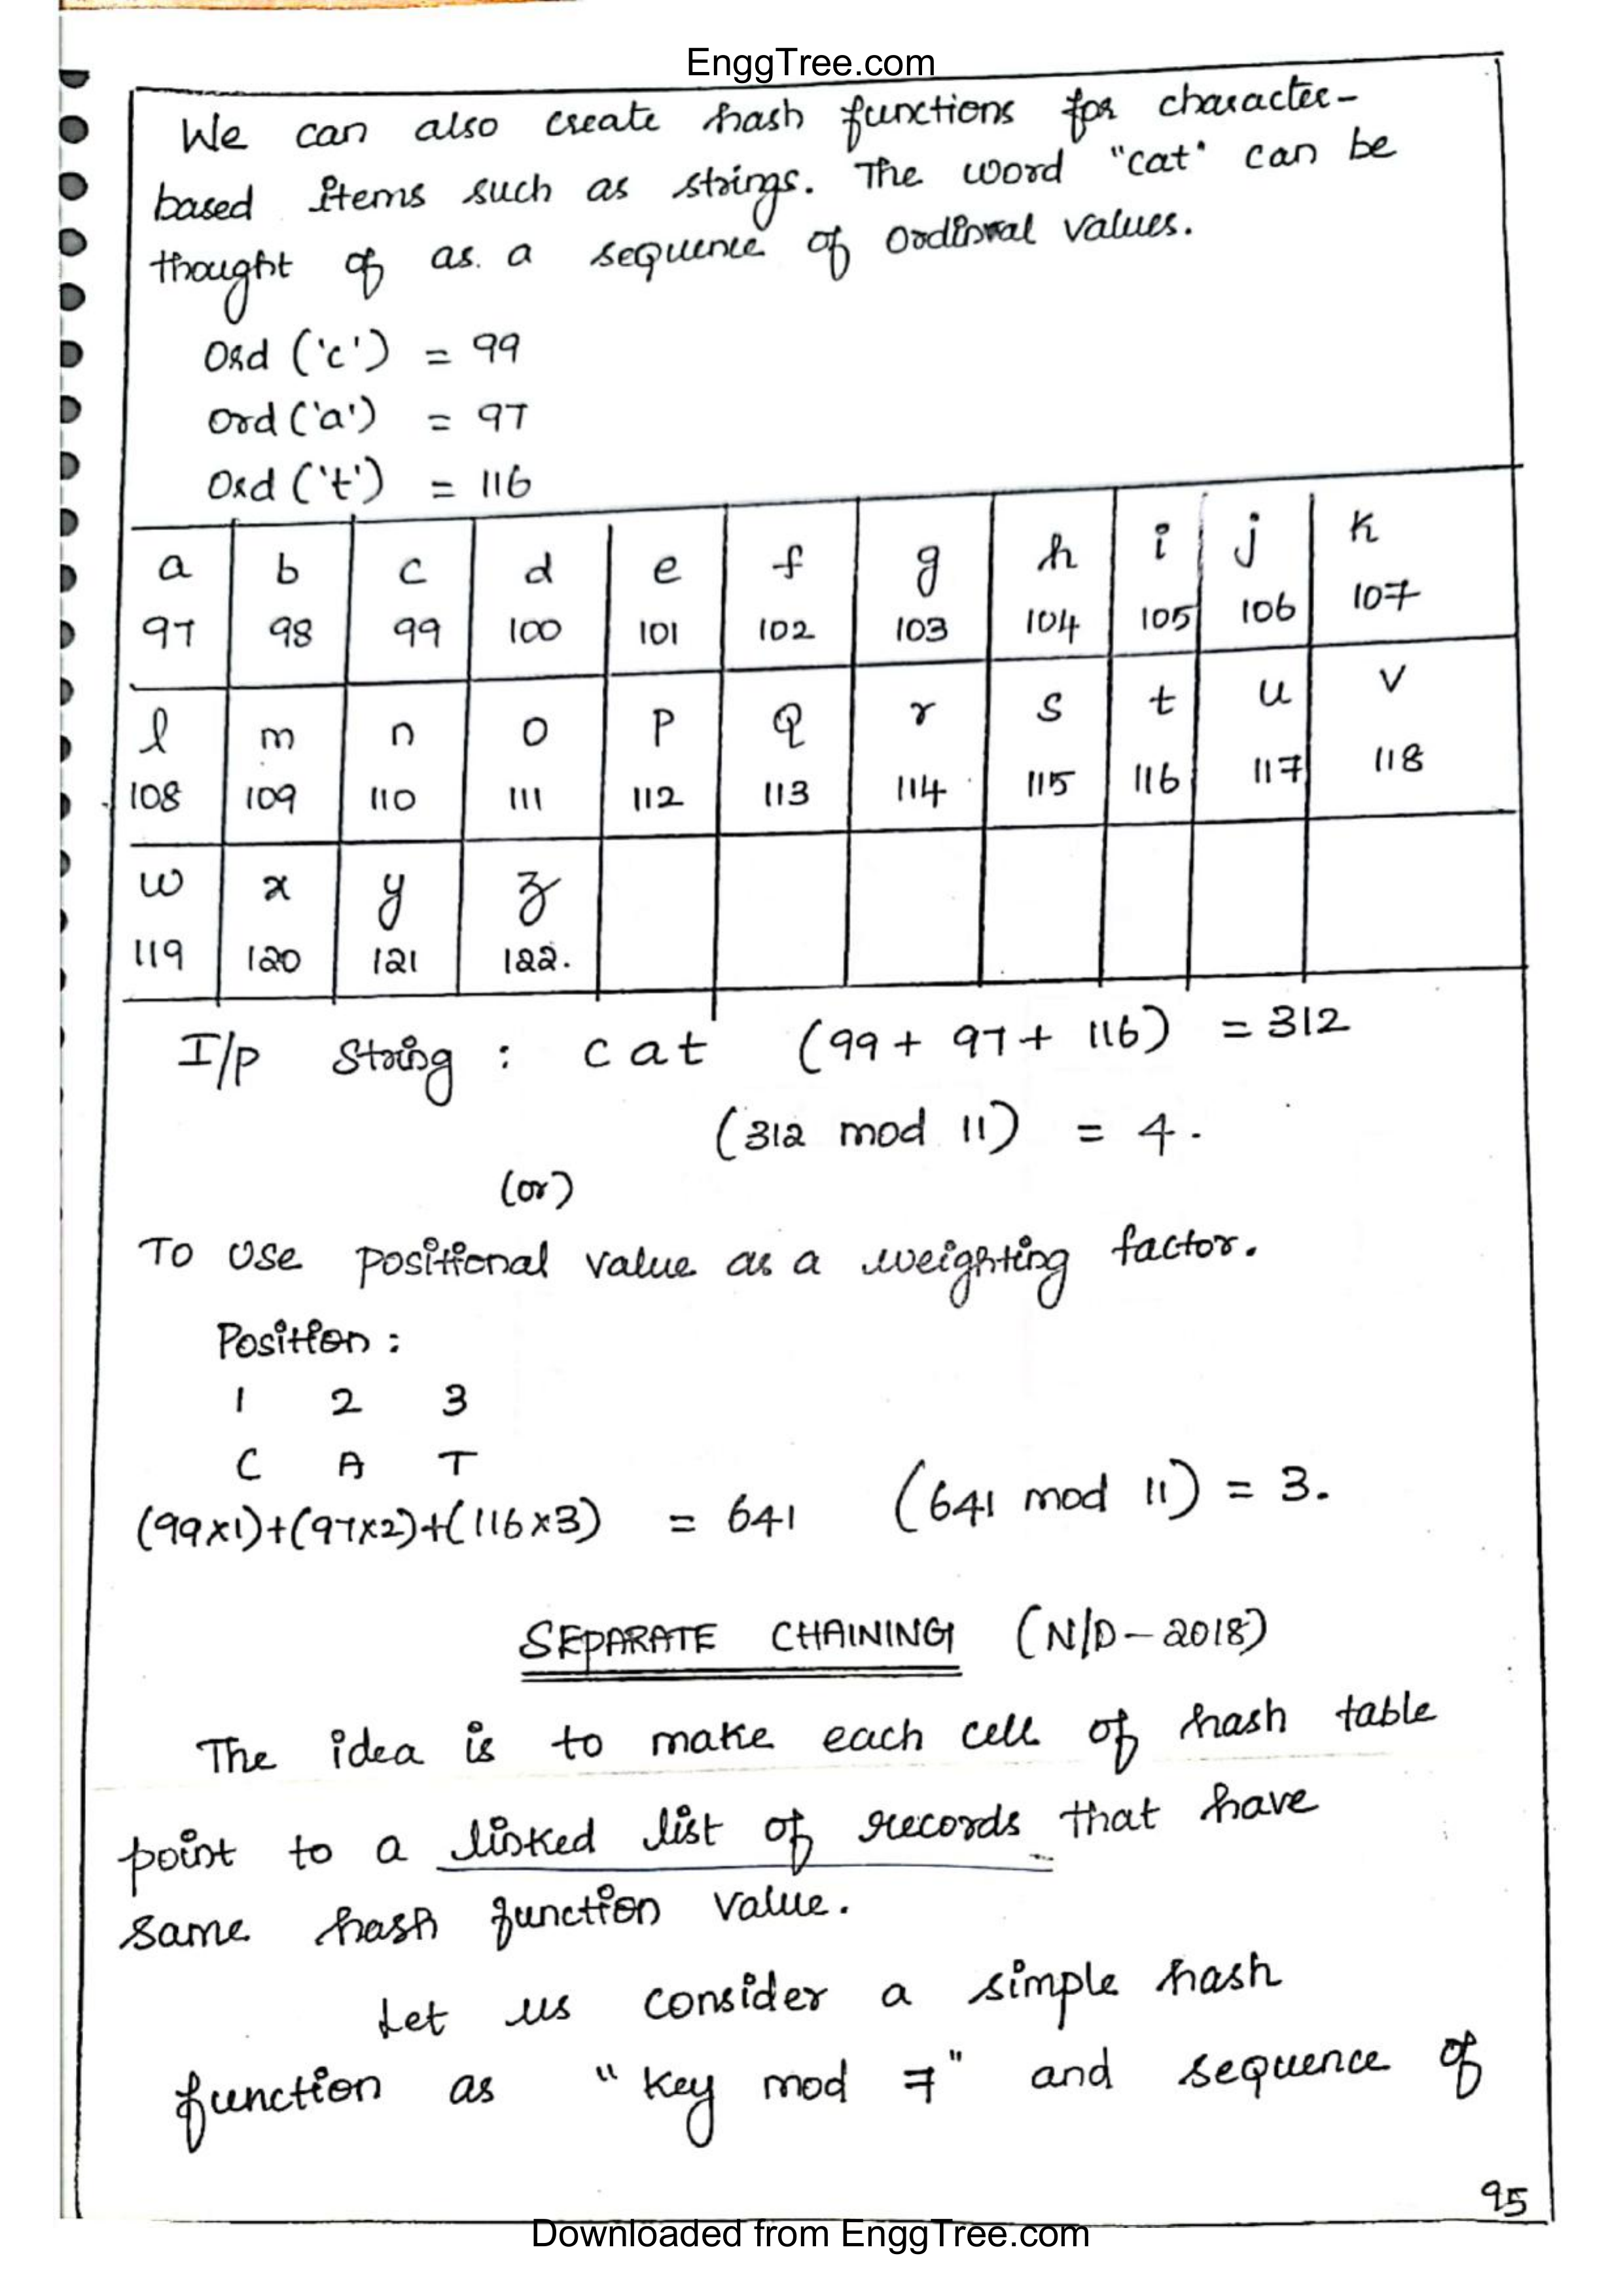 EnggTree.com
We can also create hash functions for character-
based items such as strings. The word "cat" can be
thought of as a sequence of ordinal values.
Ord ('c') = 99
Ord ('a') = 97
Ord ('t') = 116
a b c d e f g h i j k
97 98 99 100 101 102 103 104 105 106 107
l m n o p Q r s t u v
108 109 110 111 112 113 114 115 116 117 118
w x y z
119 120 121 122.
I/p String : cat (99 + 97 + 116) = 312
(312 mod 11) = 4.
(or)
To use positional value as a weighting factor.
Position :
1 2 3
C A T
(99x1)+(97x2)+(116x3) = 641 (641 mod 11) = 3.
SEPARATE CHAINING (N/D-2018)
The idea is to make each cell of hash table
point to a linked list of records that have
same hash function value.
Let us consider a simple hash
function as "key mod 7" and sequence of
95
Downloaded from EnggTree.com